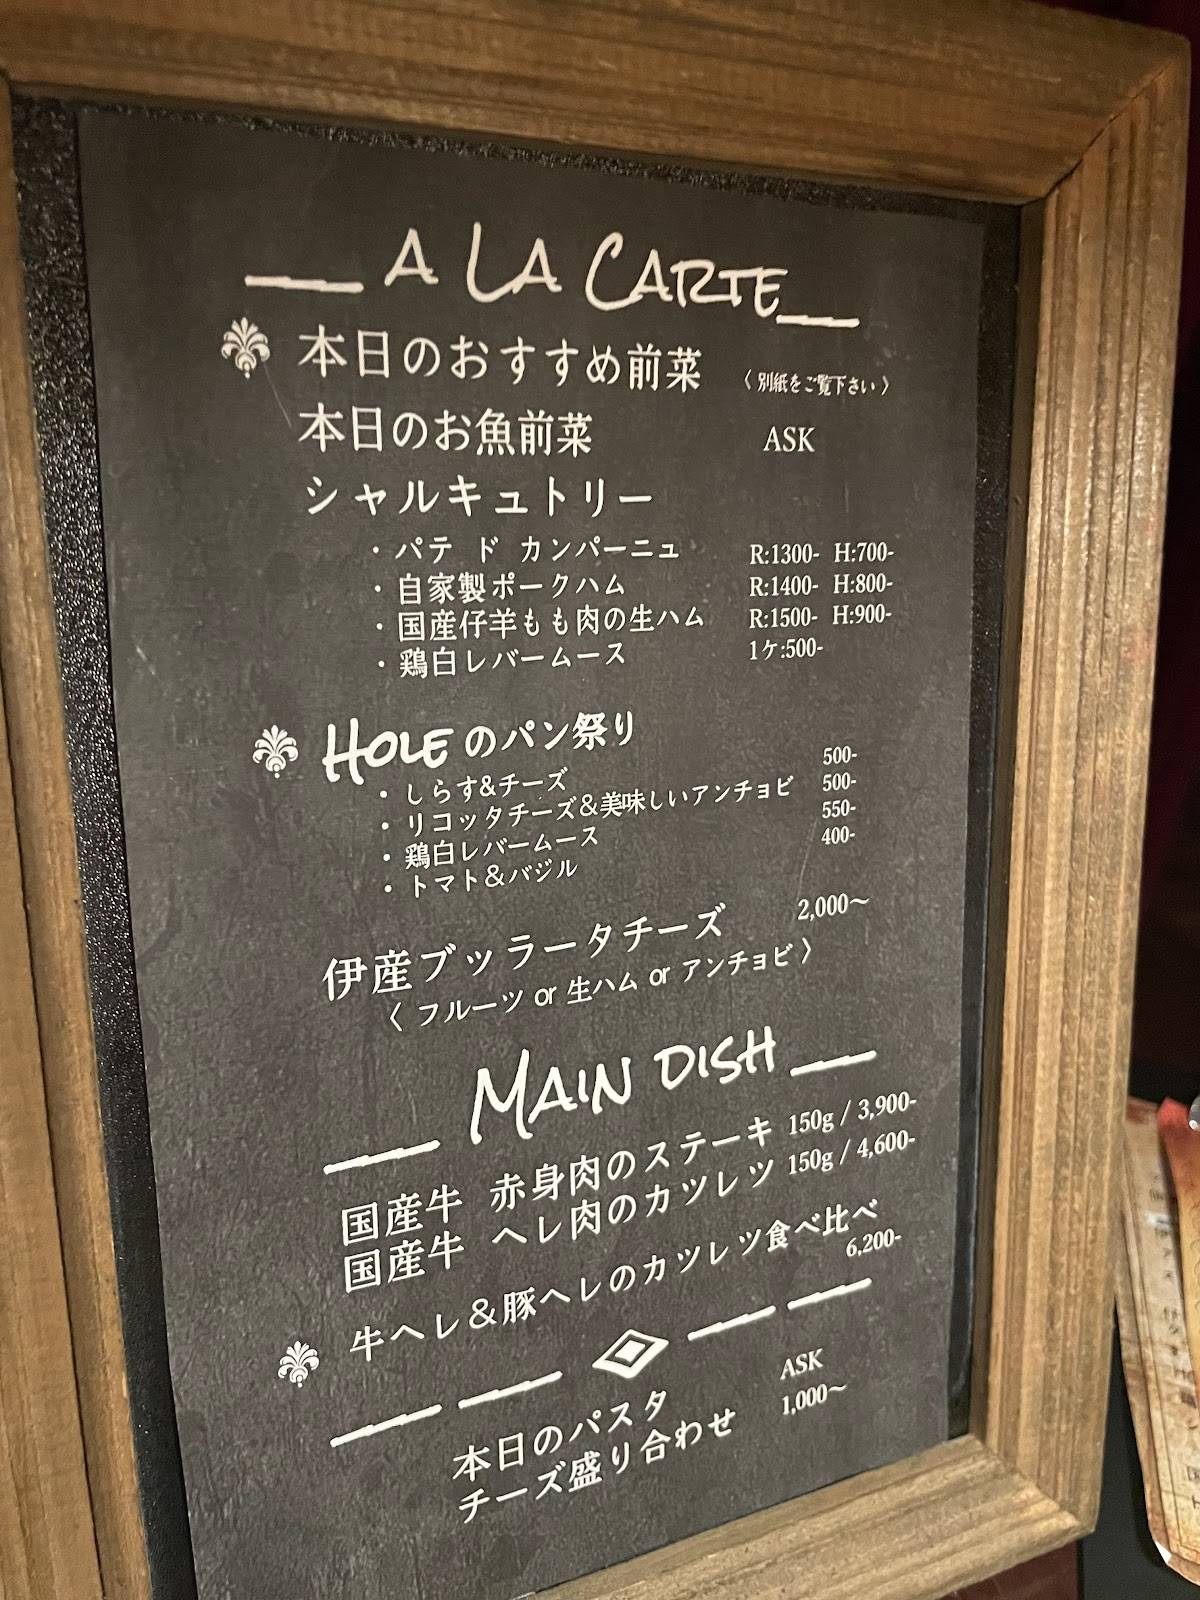 A LA CARTE
本日のおすすめ前菜 〈別紙をご覧下さい〉
本日のお魚前菜 ASK
シャルキュトリー
・パテ ド カンパーニュ R:1300- H:700-
・自家製ポークハム R:1400- H:800-
・国産仔羊もも肉の生ハム R:1500- H:900-
・鶏白レバームース 1ケ:500-
HOLEのパン祭り
・しらす&チーズ 500-
・リコッタチーズ&美味しいアンチョビ 500-
・鶏白レバームース 550-
・トマト&バジル 400-
伊産ブッラータチーズ 2,000〜
〈フルーツ or 生ハム or アンチョビ〉
MAIN DISH
国産牛 赤身肉のステーキ 150g / 3,900-
国産牛 ヘレ肉のカツレツ 150g / 4,600-
牛ヘレ&豚ヘレのカツレツ食べ比べ
6,200-
本日のパスタ ASK
チーズ盛り合わせ 1,000〜